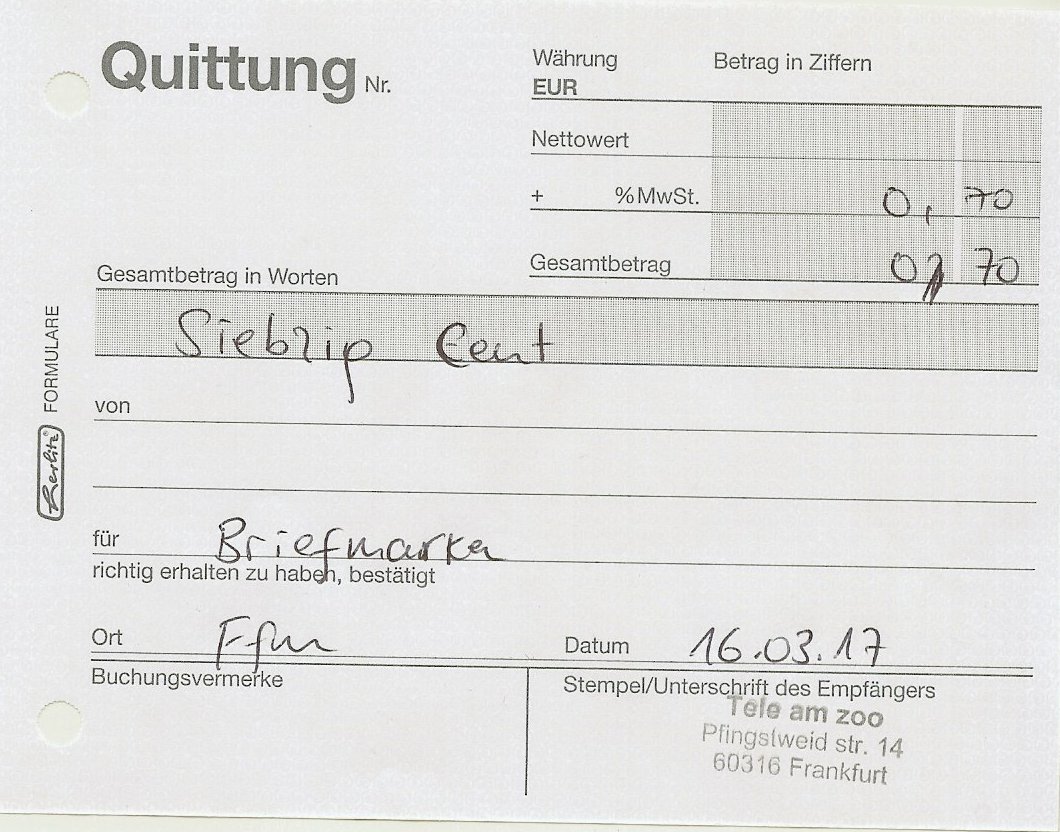 Quittung Nr.
Währung
EUR
Betrag in Ziffern
Nettowert
+ %MwSt. 0, 70
Gesamtbetrag 0, 70
Gesamtbetrag in Worten
Siebzig Cent
von
für Briefmarken
richtig erhalten zu haben, bestätigt
Ort Ffm
Datum 16.03.17
Buchungsvermerke
Stempel/Unterschrift des Empfängers
Tele am zoo
Pfingstweid str. 14
60316 Frankfurt
herlitz FORMULARE